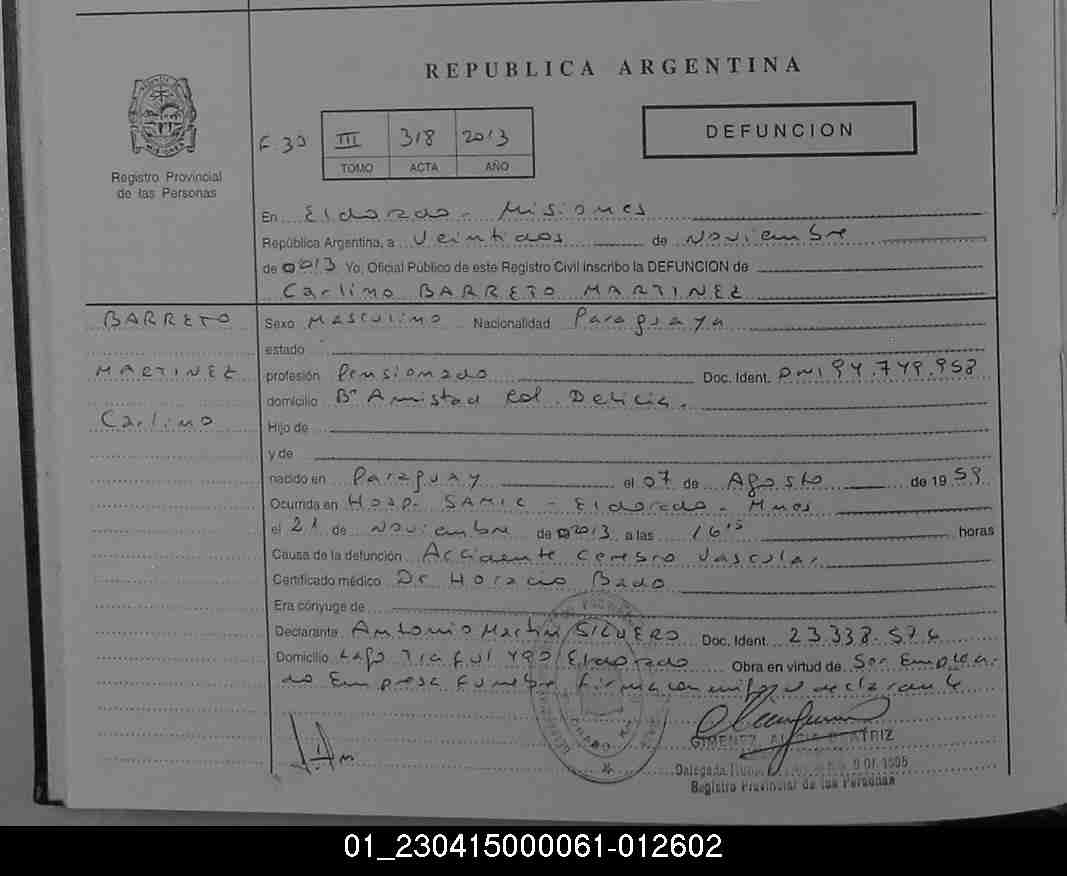 REPUBLICA ARGENTINA
F 30 III 318 2013
TOMO ACTA AÑO
DEFUNCION
Registro Provincial
de las Personas
En Eldorado - Misiones
República Argentina, a Veintidos de Noviembre
de 2013 Yo, Oficial Público de este Registro Civil inscribo la DEFUNCION de
Carlino BARRETO MARTINEZ
BARRETO
MARTINEZ
Carlino
Sexo Masculino Nacionalidad Paraguaya
estado
profesión Pensionado Doc. Ident. DNI 94.749.958
domicilio Bº Amistad Col. Delicia.
Hijo de
y de
nacido en Paraguay el 07 de Agosto de 1959
Ocurrida en Hosp. SAMIC - Eldorado - Mnes
el 21 de Noviembre de 2013 a las 16 15 horas
Causa de la defunción Accidente cerebro vascular
Certificado médico Dr Horacio Bado
Era cónyuge de
Declarante Antonio Martin SILVERO Doc. Ident. 23.338.576
Domicilio Lago Eldorado Obra en virtud de Ser Emplea
do Empresa Funebre firma conmigo el declarante
GIMENEZ, ALICIA BEATRIZ
Delegada
Registro Provincial de las Personas
01_230415000061-012602